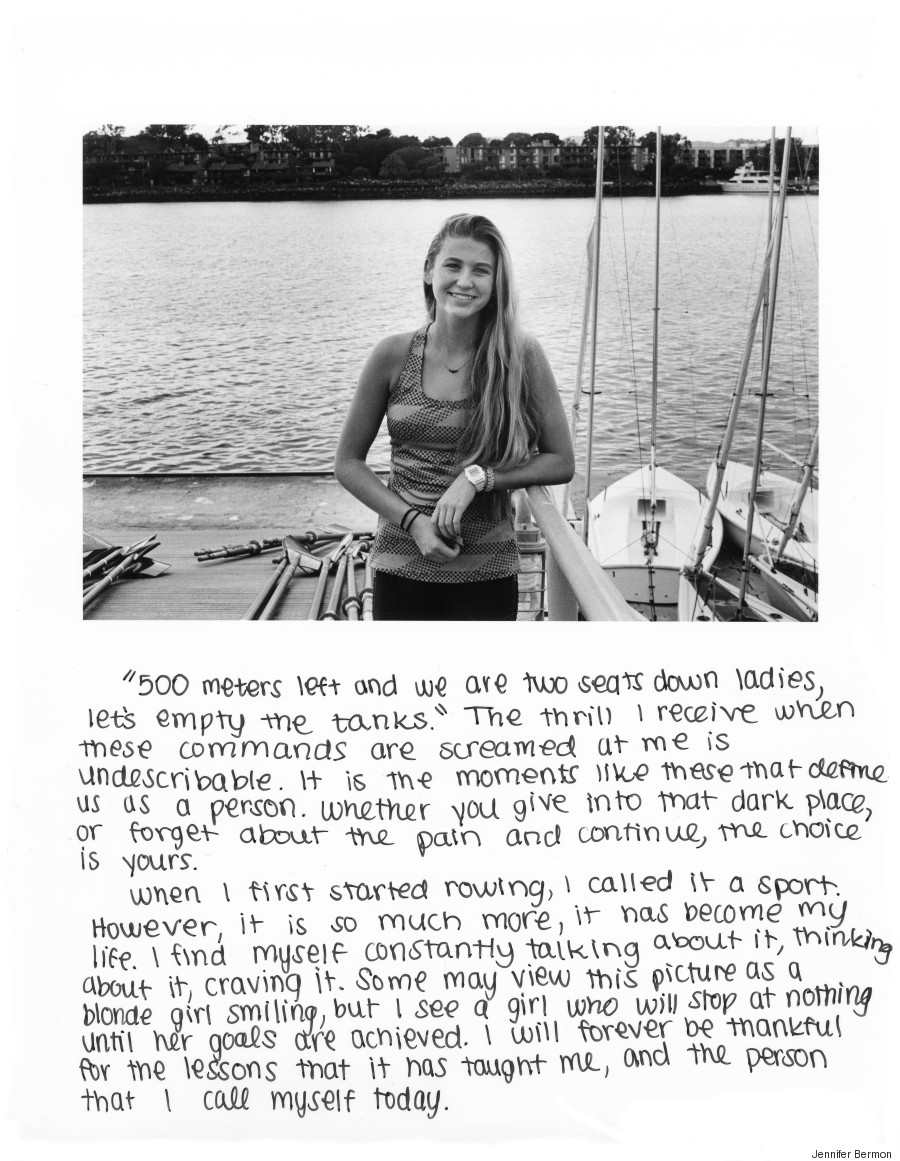 "500 meters left and we are two seats down ladies,
let's empty the tanks." The thrill I receive when
these commands are screamed at me is
undescribable. It is the moments like these that define
us as a person. Whether you give into that dark place,
or forget about the pain and continue, the choice
is yours.
When I first started rowing, I called it a sport.
However, it is so much more, it has become my
life. I find myself constantly talking about it, thinking
about it, craving it. Some may view this picture as a
blonde girl smiling, but I see a girl who will stop at nothing
until her goals are achieved. I will forever be thankful
for the lessons that it has taught me, and the person
that I call myself today.
Jennifer Bermon